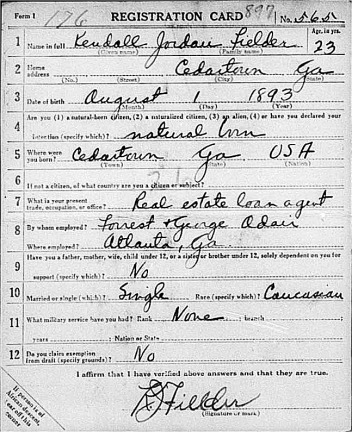 Form 1 176 REGISTRATION CARD 897 No. 565
1 Name in full Kendall Jordan Fielder Age, in yrs. 23
(Given name) (Family name)
2 Home address Cedartown Ga
(No.) (Street) (City) (State)
3 Date of birth August 1 1893
(Month) (Day) (Year)
4 Are you (1) a natural-born citizen, (2) a naturalized citizen, (3) an alien, (4) or have you declared your
intention (specify which)? natural born
5 Where were you born? Cedartown Ga USA
(Town) (State) (Nation)
6 If not a citizen, of what country are you a citizen or subject?
7 What is your present trade, occupation, or office? Real estate loan agent
8 By whom employed? Forrest & George Adair
Where employed? Atlanta, Ga
9 Have you a father, mother, wife, child under 12, or a sister or brother under 12, solely dependent on you for
support (specify which)? No
10 Married or single (which)? Single Race (specify which)? Caucasian
11 What military service have you had? Rank None ; branch
years ; Nation or State
12 Do you claim exemption from draft (specify grounds)? No
I affirm that I have verified above answers and that they are true.
KJ Fielder
(Signature or mark)
If person is of
African descent,
tear off this
corner